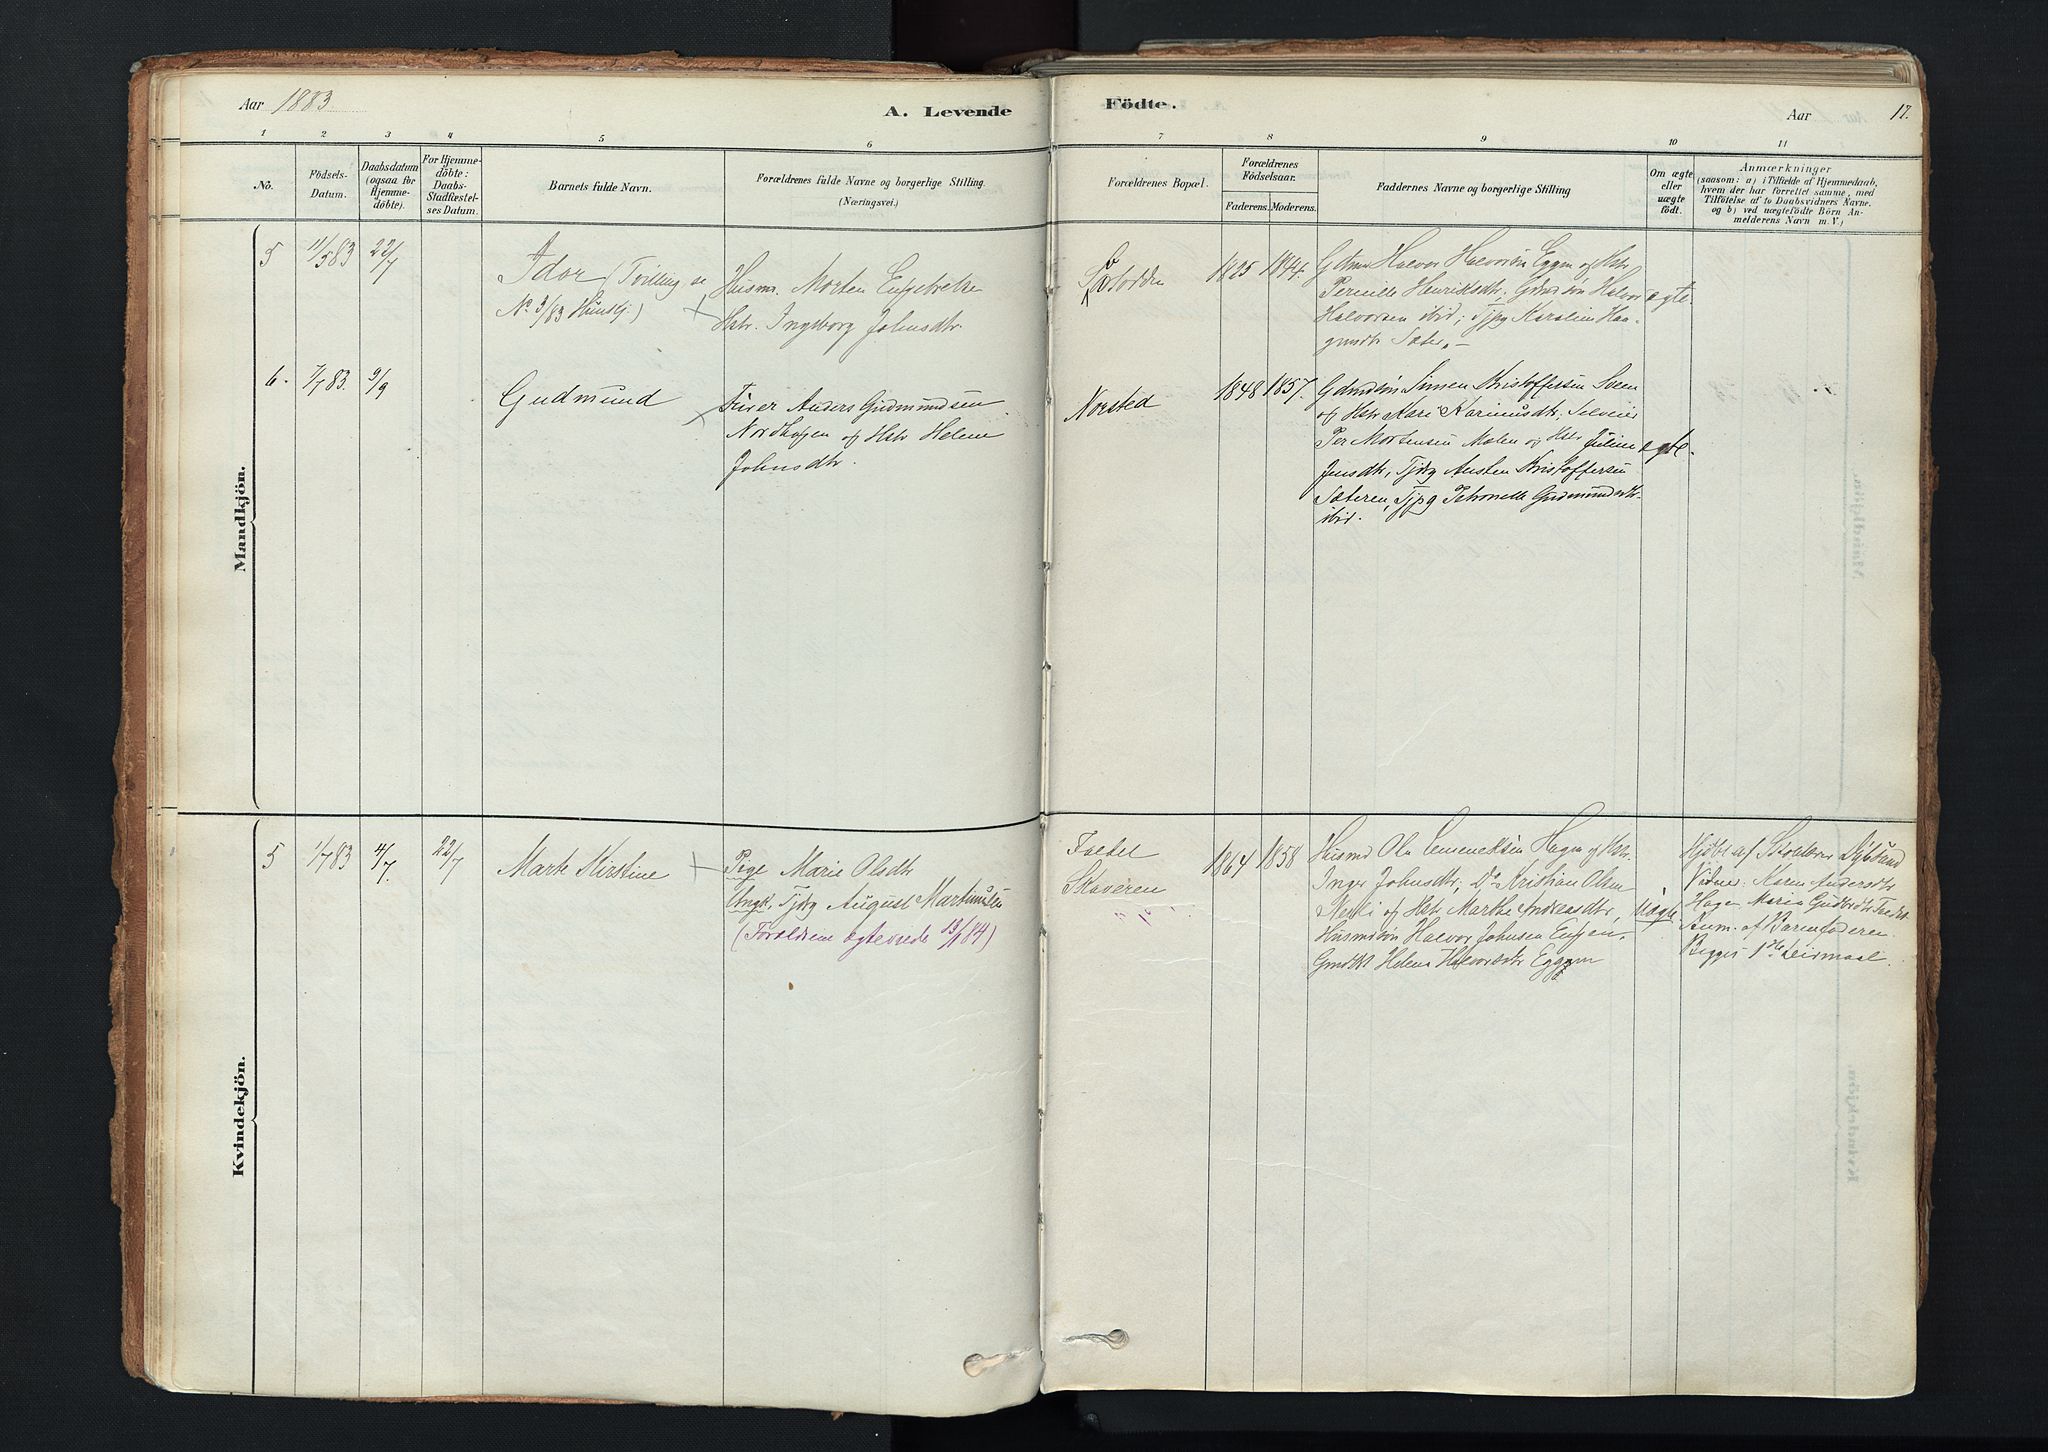 Aar 1883
A. Levende
Födte.
Aar
17.
1
2
3
4
5
6
7
8
9
10
11
No.
Födsels-
Datum.
Daabsdatum
(ogsaa for
Hjemme-
döbte).
For Hjemme-
döbte:
Daabs-
Stadfæstel-
ses Datum.
Barnets fulde Navn.
Forældrenes fulde Navne og borgerlige Stilling.
(Næringsvei.)
Forældrenes Bopæl.
Forældrenes
Födselsaar.
Faderens.
Moderens.
Faddernes Navne og borgerlige Stilling
Om ægte
eller
uægte
födt.
Anmærkninger
(saasom: a) i Tilfælde af Hjemmedaab,
hvem der har forrettet samme, med
Tilföielse af to Daabsvidners Navne.
og b) ved uægtefödte Börn An-
melderens Navn m. V.)
Mandkjön.
5
11/5 83
22/7
Idor (Tvilling se
No 3/83 Hundkj.)
Husm. Morten Engebretse
Hstr. Ingeborg Johnsdtr.
1825
1844.
Halvor Halvorsen Eggen og Hstr
Pernille Henriksdtr. Gdmdsøn Halvor
Halvorsen ibid; Tjpg Karoline Haa-
gensdtr Sæter.
ægte
6.
7/7 83.
9/9
Gudmund
Anders Gudmundsen
Nordhagen og Hstr Helene
Johnsdtr.
Norsted
1848
1857.
Gdmdsøn Simen Kristoffersen Sveen
og Hstr Kari Karinusdtr; Selveier
Per Mortensen Moen og Hstr Juline
Jensdtr, Tjdrg Austen Kristoffersen
Sæteren, Tjpg Petronelle Gudmundsdtr
ibid.
ægte.
Kvindekjön.
5
1/7 83
4/7.
22/7
Marte Kirstine
Pige Marie Olsdtr
Ungk. Tjdrg August Martinusen
(Forældrene ægteviede 13/1 84)
Skaveren
1864
1858
Husmd Ole Hagen og Hstr.
Inger Johnsdtr; Do Kristian Olsen
og Hstr Marthe Andreasdtr,
Husmdsøn Halvor Johnsen Engen,
Helene Halvorsdtr Eggen
uægte.
Hjdbt af Skolelærer Dybsund
Vidner: Karen Andersdtr
Hage, Maria Gudbrdtr
Anm. af Barnefaderen.
Begges 1ste Leirmaal.